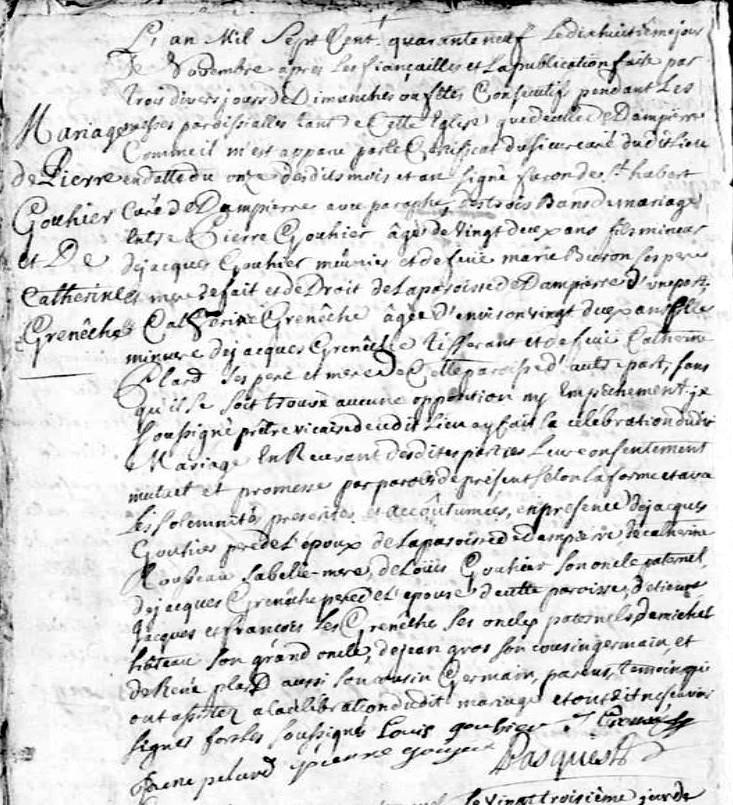 L'an Mil Sept Cent quarante neuf Le dixhuitième jour
De Novembre après Les fiançailles et La publication faite par
trois divers jours de Dimanches ou festes Consecutifs pendant Les
messes paroissialles tant de Cette Eglise que de celle de Dampierre
Comme il m'est apparu par le Certificat du sieur curé dudit lieu
en datte du onze desdits mois et an signé facon de St hubert
Curé de Dampierre avec paraphe, Des trois Bans de mariage
Entre Pierre Gouhier âgé de vingt deux ans fils mineur
de jacques Gouhier meunier et de feüe marie Biron ses pere
et mere de fait et de Droit de La paroisse de Dampierre d'une part,
Catherine Grenêche âgée D'environ vingt deux ans fille
mineure de jacques Grenêche Tisserant et de feüe Catherine
Plard ses pere et mere De Cette paroisse d'autre part, sans
qu'il se soit trouvé aucune oppontion ny Empêchement, je
soussigné prêtre vicaire de cedit Lieu ay fait la célébration dudit
Mariage En Recevant desdites parties Leur consentement
mutuel et promesse par paroles de présent selon la forme et avec
Les solemnités prescrites et accoûtumées, en presence De jacques
Gouhier pere de L'epoux de la paroisse de Dampierre de catherine
Rousseau sa belle-mere, de Loüis Gouhier son oncle paternel,
de jacques Grenêche pere de L'epouse de cette paroisse, D'etienne
jacques et francois Les Grenêche ses oncles paternels De michel
hâteau son grand oncle, de jean gros son cousin germain, et
de René plard aussi son cousin Germain, parens, temoins qui
ont assistez a la celebration dudit mariage et ont dit ne scavoir
signer fors les soussignés Louis gouhier
Rene pelard pierre gouyer Pasquest
Le vingt troisième jour de
Mariage
de Pierre
Gouhier
et De
Catherine
Grenêche